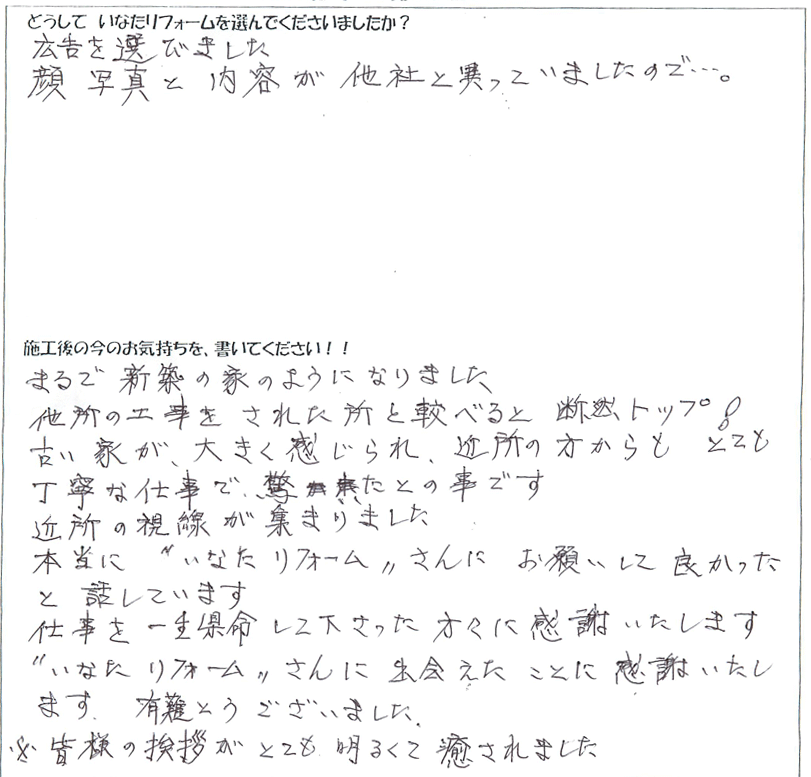 どうして いなたリフォームを選んでくださいましたか？
広告を選びました
顔写真と内容が他社と異っていましたので…。
施工後の今のお気持ちを、書いてください！！
まるで新築の家のようになりました
他所の工事をされた所と較べると断然トップ！
古い家が、大きく感じられ、近所の方からも とても
丁寧な仕事で、驚いたとの事です
近所の視線が集まりました
本当に〝いなたリフォーム〟さんに お願いして良かった
と話しています
仕事を一生県命して下さった方々に感謝いたします
〝いなたリフォーム〟さんに出会えたことに感謝いたし
ます。有難とうございました。
※皆様の挨拶がとても明るくて癒されました